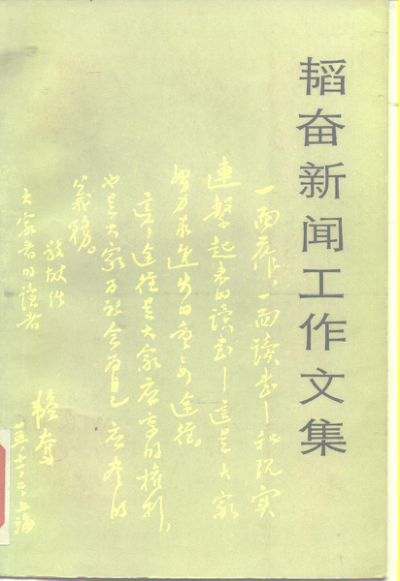 韬奋新闻工作文集
一面工作,一面读书—和现实
連繫起来的读书—這是大家
努力求进步的重要途径。
這个途径是大家应享的权利,
也是大家为社会为自己应尽的
義務。
敬献给
的读者
韬奋
上海